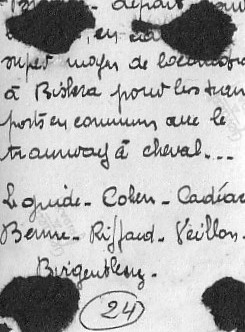 depuis
, en
super moyen de locomotion
à Biskra pour les trans
ports en commun que le
tramway à cheval....
Le guide - Cohen - Cadéac
Benne - Riffaud - Véillon -
24